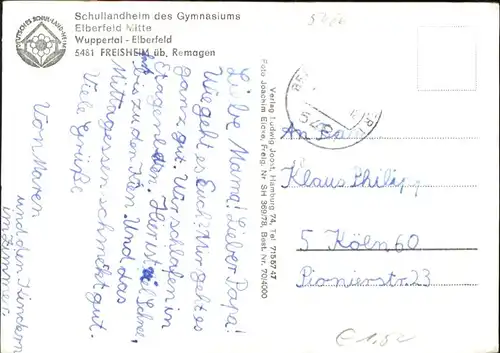 Schullandheim des Gymnasiums
Elberfeld Mitte
Wuppertal - Elberfeld
5481 FREISHEIM üb. Remagen
DEUTSCHES SCHULLANDHEIM
Liebe Mama! Lieber Papa!
Wie geht es Euch? Mir geht es
ganz gut. Wir schlafen in
Etagenbetten. Hier ist viel Schnee,
bis zu den Knien. Und das
Mittagessen schmeckt gut.
Viele Grüße
Von Maren
und den Kindern
im Zimmer
Verlag Ludwig Joost, Hamburg 74, Tel. 7155747
Foto Joachim Eicke, Freig. Nr SH 369/78, Best. Nr. 704000
An
Klaus Philipp
5 KÖLN 60
Pionierstr. 23
€ 1,52